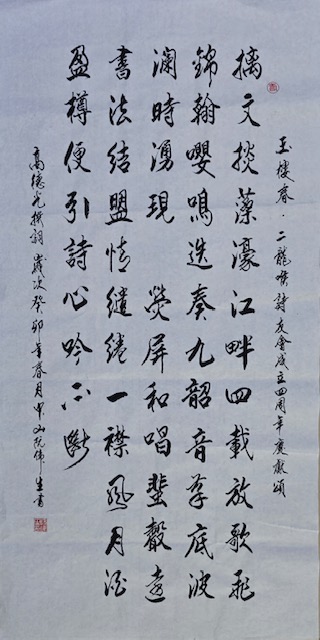 玉樓春·二龍喉詩友會成立四周年慶獻頌
摛文掞藻濠江畔四載放歌飛
錦翰嚶鳴迭奏九韶音字底波
瀾時湧現 熒屏和唱蜚聲遠
書法結盟情繾綣一襟風月酒
盈樽便引詩心吟不斷
高德光撰詞 歲次癸卯年春月中山阮偉生書